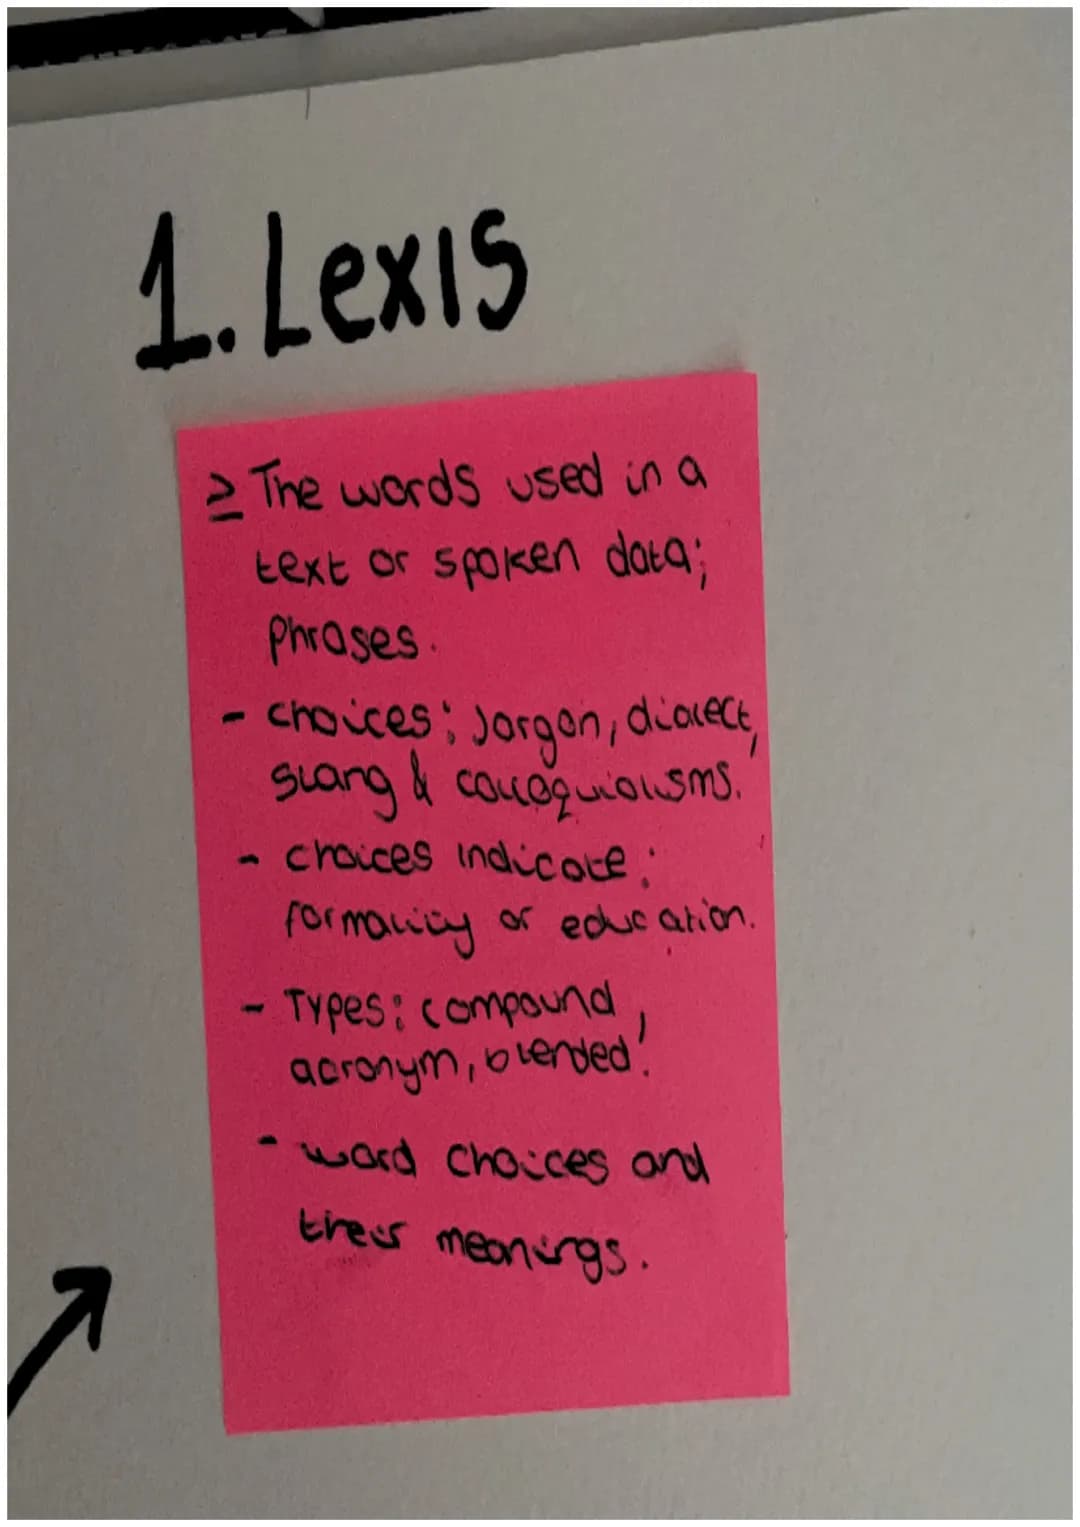 1. Lexis
≥ The words used in a
text or spoken data;
Phrases.
- choices: Jargon, dialect,
slang & colloquialisms.
- choices indicate:
formality or education.
- Types: compound,
acronym, blended.
- word choices and
their meanings.